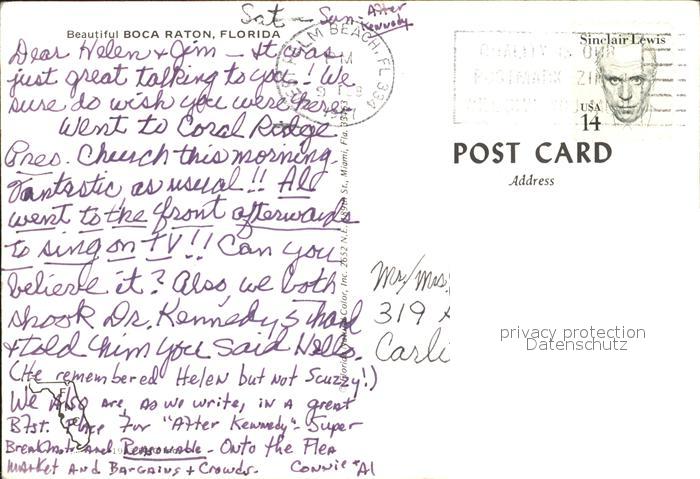 Sat - Sun - After Kennedy
Beautiful BOCA RATON, FLORIDA
Dear Helen + Jim - It was
just great talking to you!! We
sure do wish you were here.
Went to Coral Ridge
Pres. Church this morning.
Fantastic as usual!! Al
went to the front afterwards
to sing on TV!! Can you
believe it? Also, we both
shook Dr. Kennedy's hand
+ told him you said Hello.
(He remembered Helen but not Scuzzy!)
We Also are, as we write, in a great
Bfst. Place for "After Kennedy". Super
Breakfasts and Reasonable - Onto the Flea
market and Bargains + Crowds. Connie + Al
PALM BEACH, FL 334
Color, Inc. 2652 N.E. 189th St., Miami, Fla.
Sinclair Lewis
USA
14
POST CARD
Address
Mr/Mrs.
319
Carli
privacy protection
Datenschutz